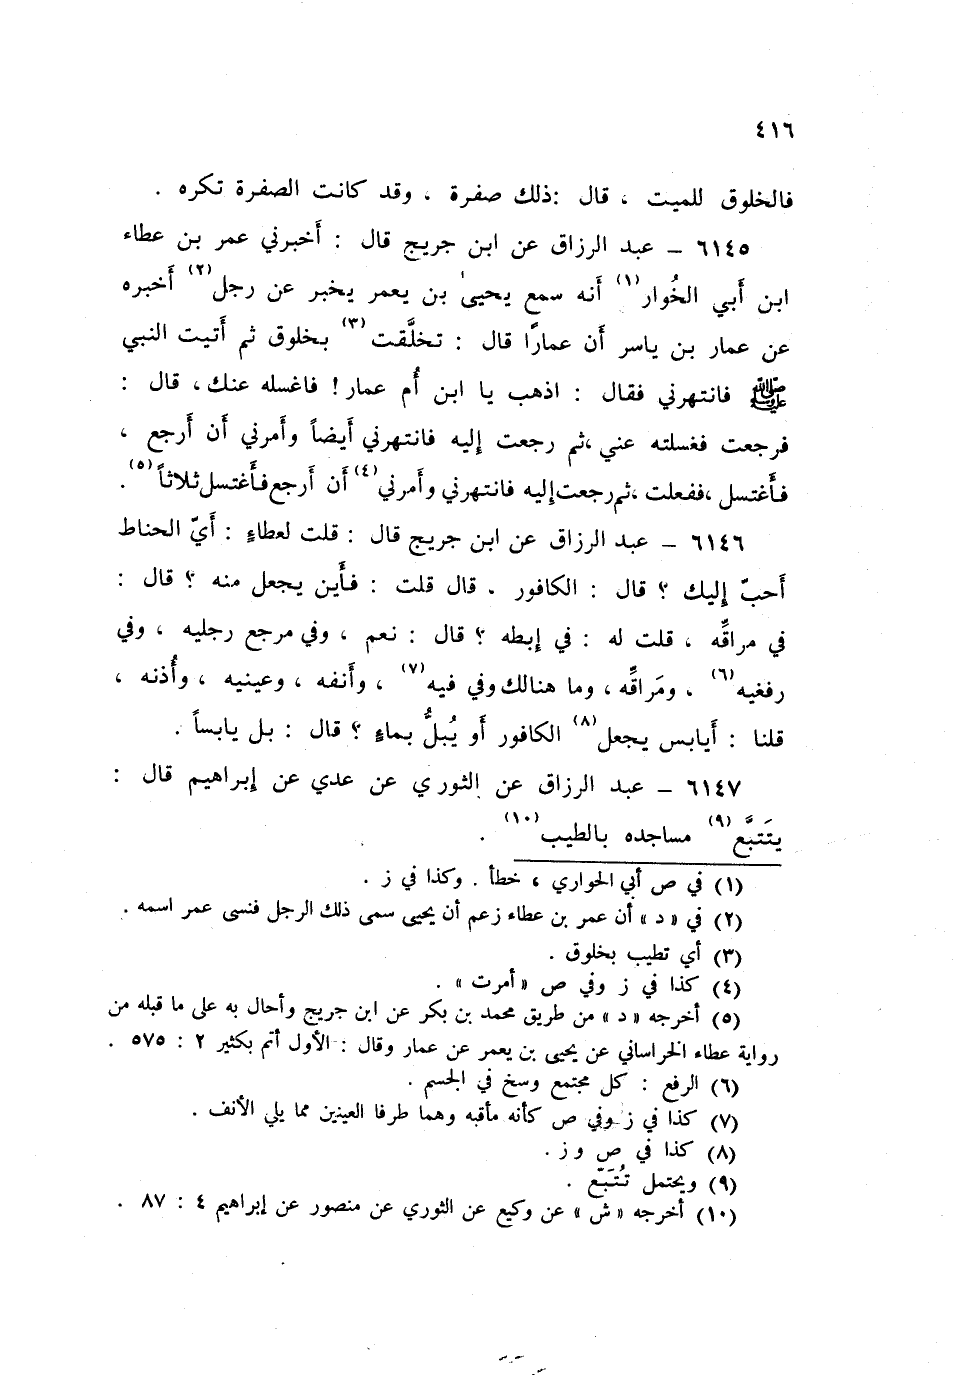 ٤١٦
فالخلوق للميت ، قال :ذلك صفرة ، وقد كانت الصفرة تكره .
٦١٤٥ – عبد الرزاق عن ابن جريج قال : أَخبرني عمر بن عطاء
ابن أَبي الخُوار(١) أَنه سمع يحيىٰ بن يعمر يخبر عن رجل(٢) أَخبره
عن عمار بن ياسر أَن عمارًا قال : تخلَّقت(٣) بخلوق ثم أَتيت النبي
ﷺ فانتهرني فقال : اذهب يا ابن أُم عمار! فاغسله عنك، قال :
فرجعت فغسلته عني ،ثم رجعت إليه فانتهرني أَيضاً وأَمرني أَن أَرجع ،
فأَغتسل ،ففعلت ،ثم رجعت إليه فانتهرني وأَمرني(٤) أَن أَرجع فأَغتسل ثلاثاً(٥).
٦١٤٦ – عبد الرزاق عن ابن جريج قال : قلت لعطاءٍ : أَيّ الحناط
أَحبّ إليك ؟ قال : الكافور . قال قلت : فأَين يجعل منه ؟ قال :
في مراقِّه ، قلت له : في إبطه ؟ قال : نعم ، وفي مرجع رجليه ، وفي
رفغيه(٦) ، ومَراقِّه ، وما هنالك وفي فيه(٧) ، وأَنفه ، وعينيه ، وأُذنه ،
قلنا : أَيابس يجعل(٨) الكافور أَو يُبلُّ بماءٍ ؟ قال : بل يابساً .
٦١٤٧ – عبد الرزاق عن الثوري عن عدي عن إبراهيم قال :
يتَتبَّع(٩) مساجده بالطيب(١٠) .
(١) في ص أبي الحواري ، خطأ . وكذا في ز .
(٢) في « د » أن عمر بن عطاء زعم أن يحيى سمى ذلك الرجل فنسى عمر اسمه .
(٣) أي تطيب بخلوق .
(٤) كذا في ز وفي ص « أمرت » .
(٥) أخرجه « د » من طريق محمد بن بكر عن ابن جريج وأحال به على ما قبله من
رواية عطاء الخراساني عن يحيى بن يعمر عن عمار وقال : الأول أتم بكثير ٢ : ٥٧٥ .
(٦) الرفع : كل مجتمع وسخ في الجسم .
(٧) كذا في ز وفي ص كأنه مأقبه وهما طرفا العينين مما يلي الأنف .
(٨) كذا في ص و ز .
(٩) ويحتمل تُتَبّع .
(١٠) أخرجه « ش » عن وكيع عن الثوري عن منصور عن إبراهيم ٤ : ٨٧ .